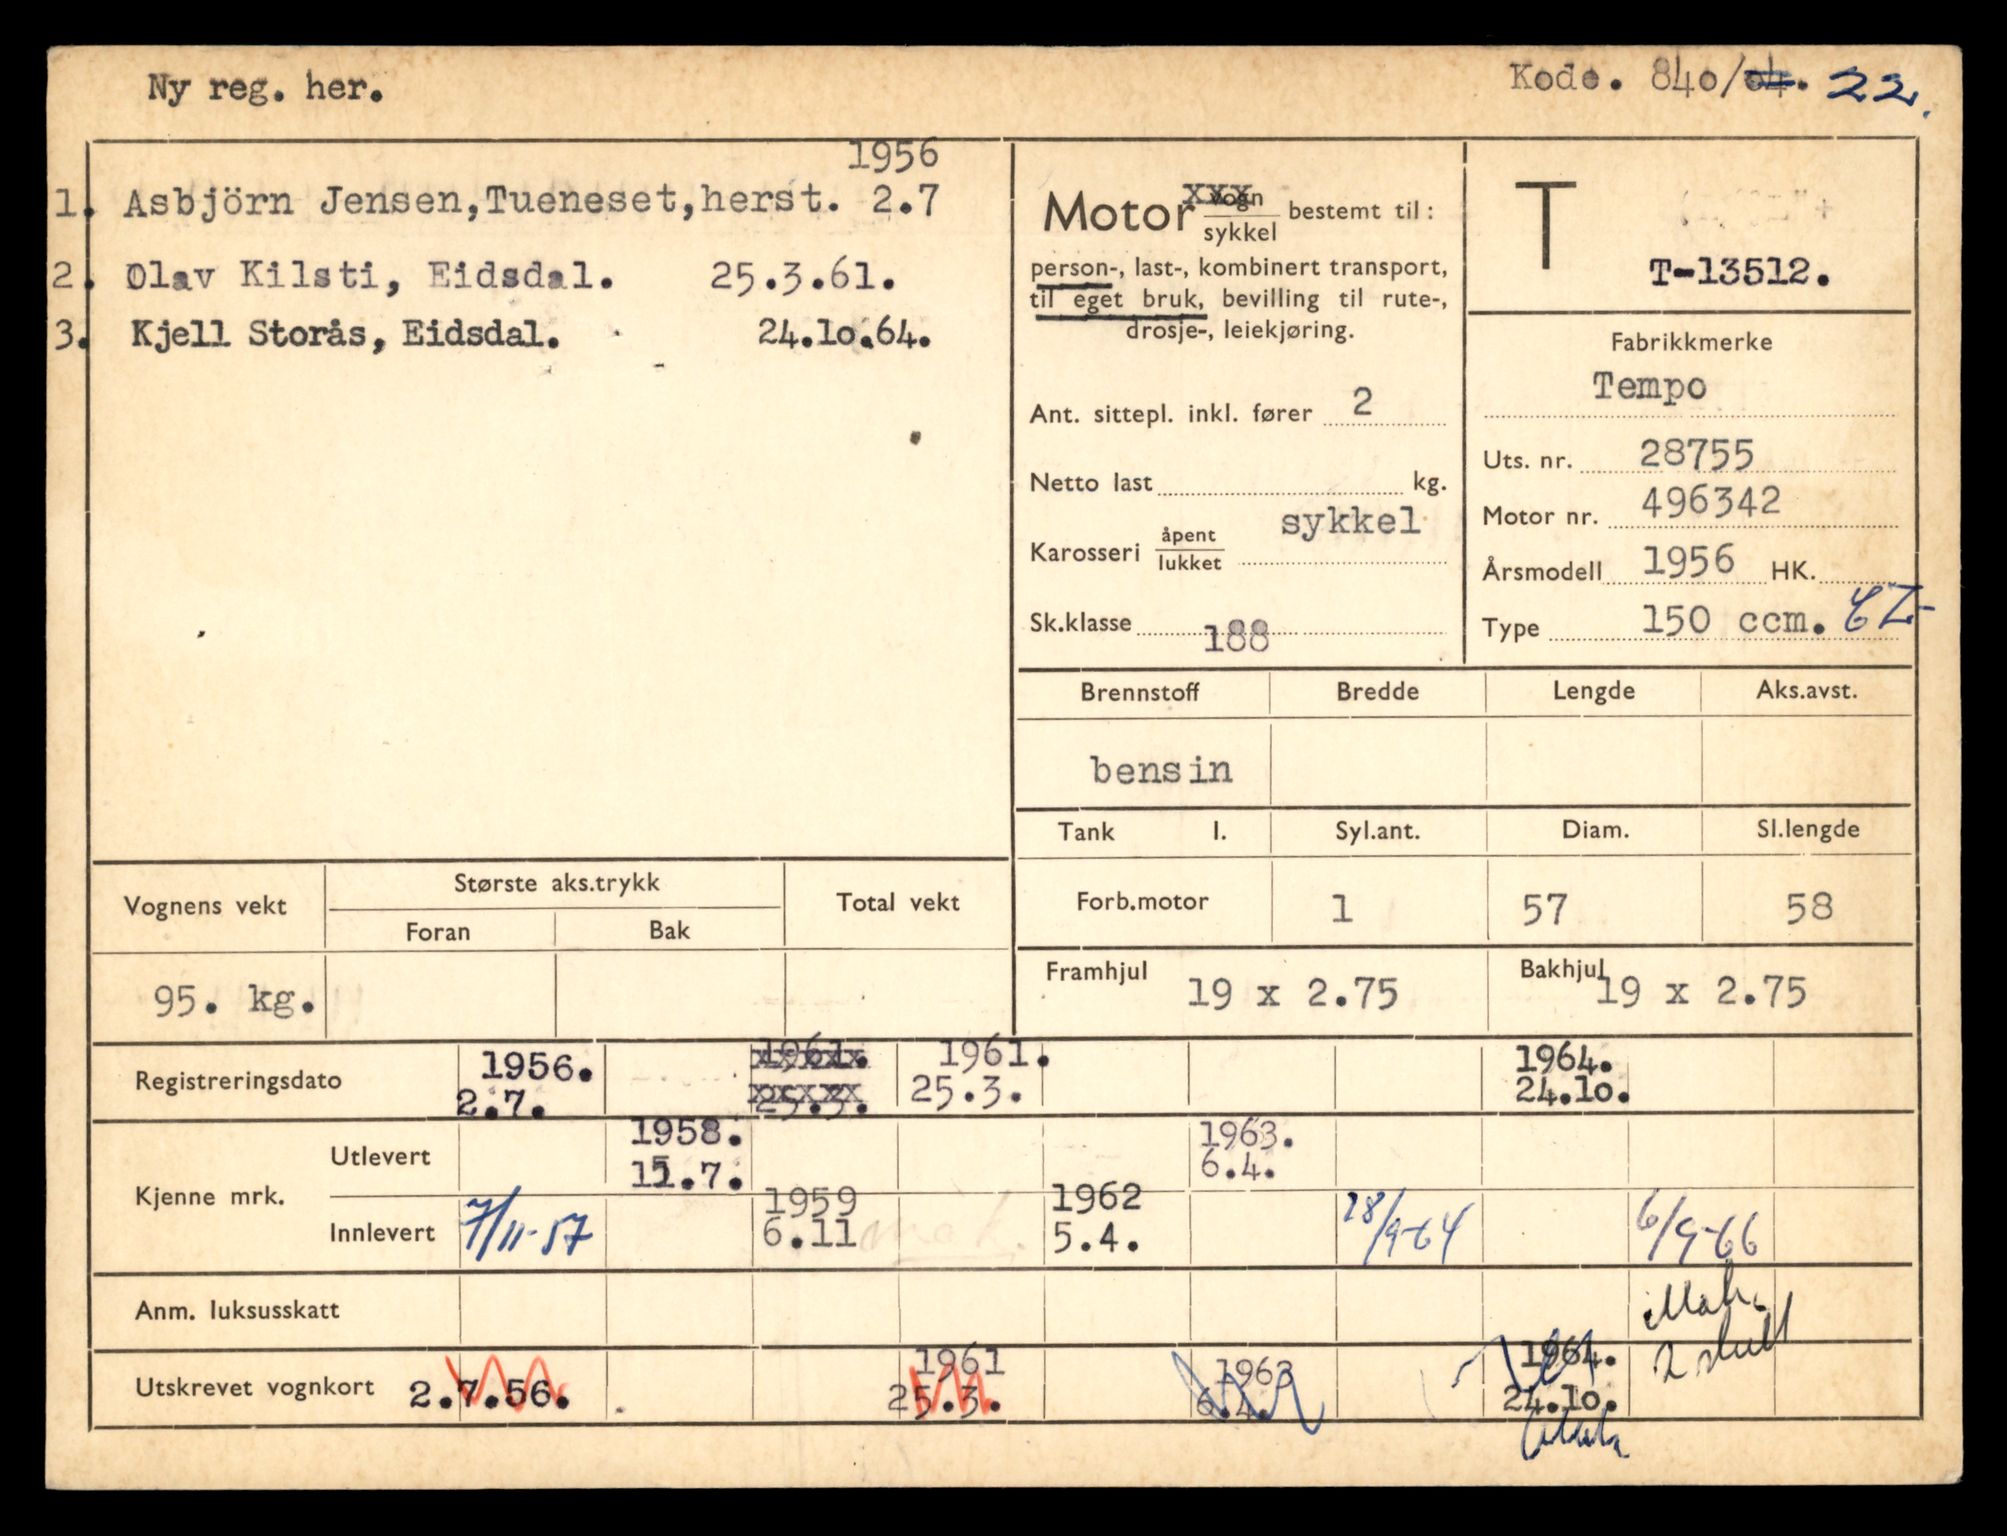 Ny reg. her.
Kode. 840/04. 22.
1956
1. Asbjörn Jensen,Tueneset,herst. 2.7
2. Olav Kilsti, Eidsdal. 25.3.61.
3. Kjell Storås, Eidsdal. 24.10.64.
Motor vogn
sykkel bestemt til:
person-, last-, kombinert transport,
til eget bruk, bevilling til rute-,
drosje-, leiekjøring.
Ant. sittepl. inkl. fører 2
Netto last kg.
Karosseri åpent
lukket sykkel
Sk.klasse 188
T
T-13512.
Fabrikkmerke
Tempo
Uts. nr. 28755
Motor nr. 496342
Årsmodell 1956 HK.
Type 150 ccm.
Brennstoff Bredde Lengde Aks.avst.
bensin
Tank l. Syl.ant. Diam. Sl.lengde
Forb.motor 1 57 58
Framhjul 19 x 2.75 Bakhjul 19 x 2.75
Vognens vekt Største aks.trykk Total vekt
Foran Bak
95. kg.
Registreringsdato 1956. 1961. 1961. 1964.
2.7. 25.3. 25.3. 24.10.
Kjenne mrk.
Utlevert 1958. 1963.
11.7. 6.4.
Innlevert 7/11-57 1959 1962 28/9-64 6/9-66
6.11 mak. 5.4.
Anm. luksusskatt
Utskrevet vognkort 2.7.56. 1961 1963 1964.
25.3. 6.4. 24.10.